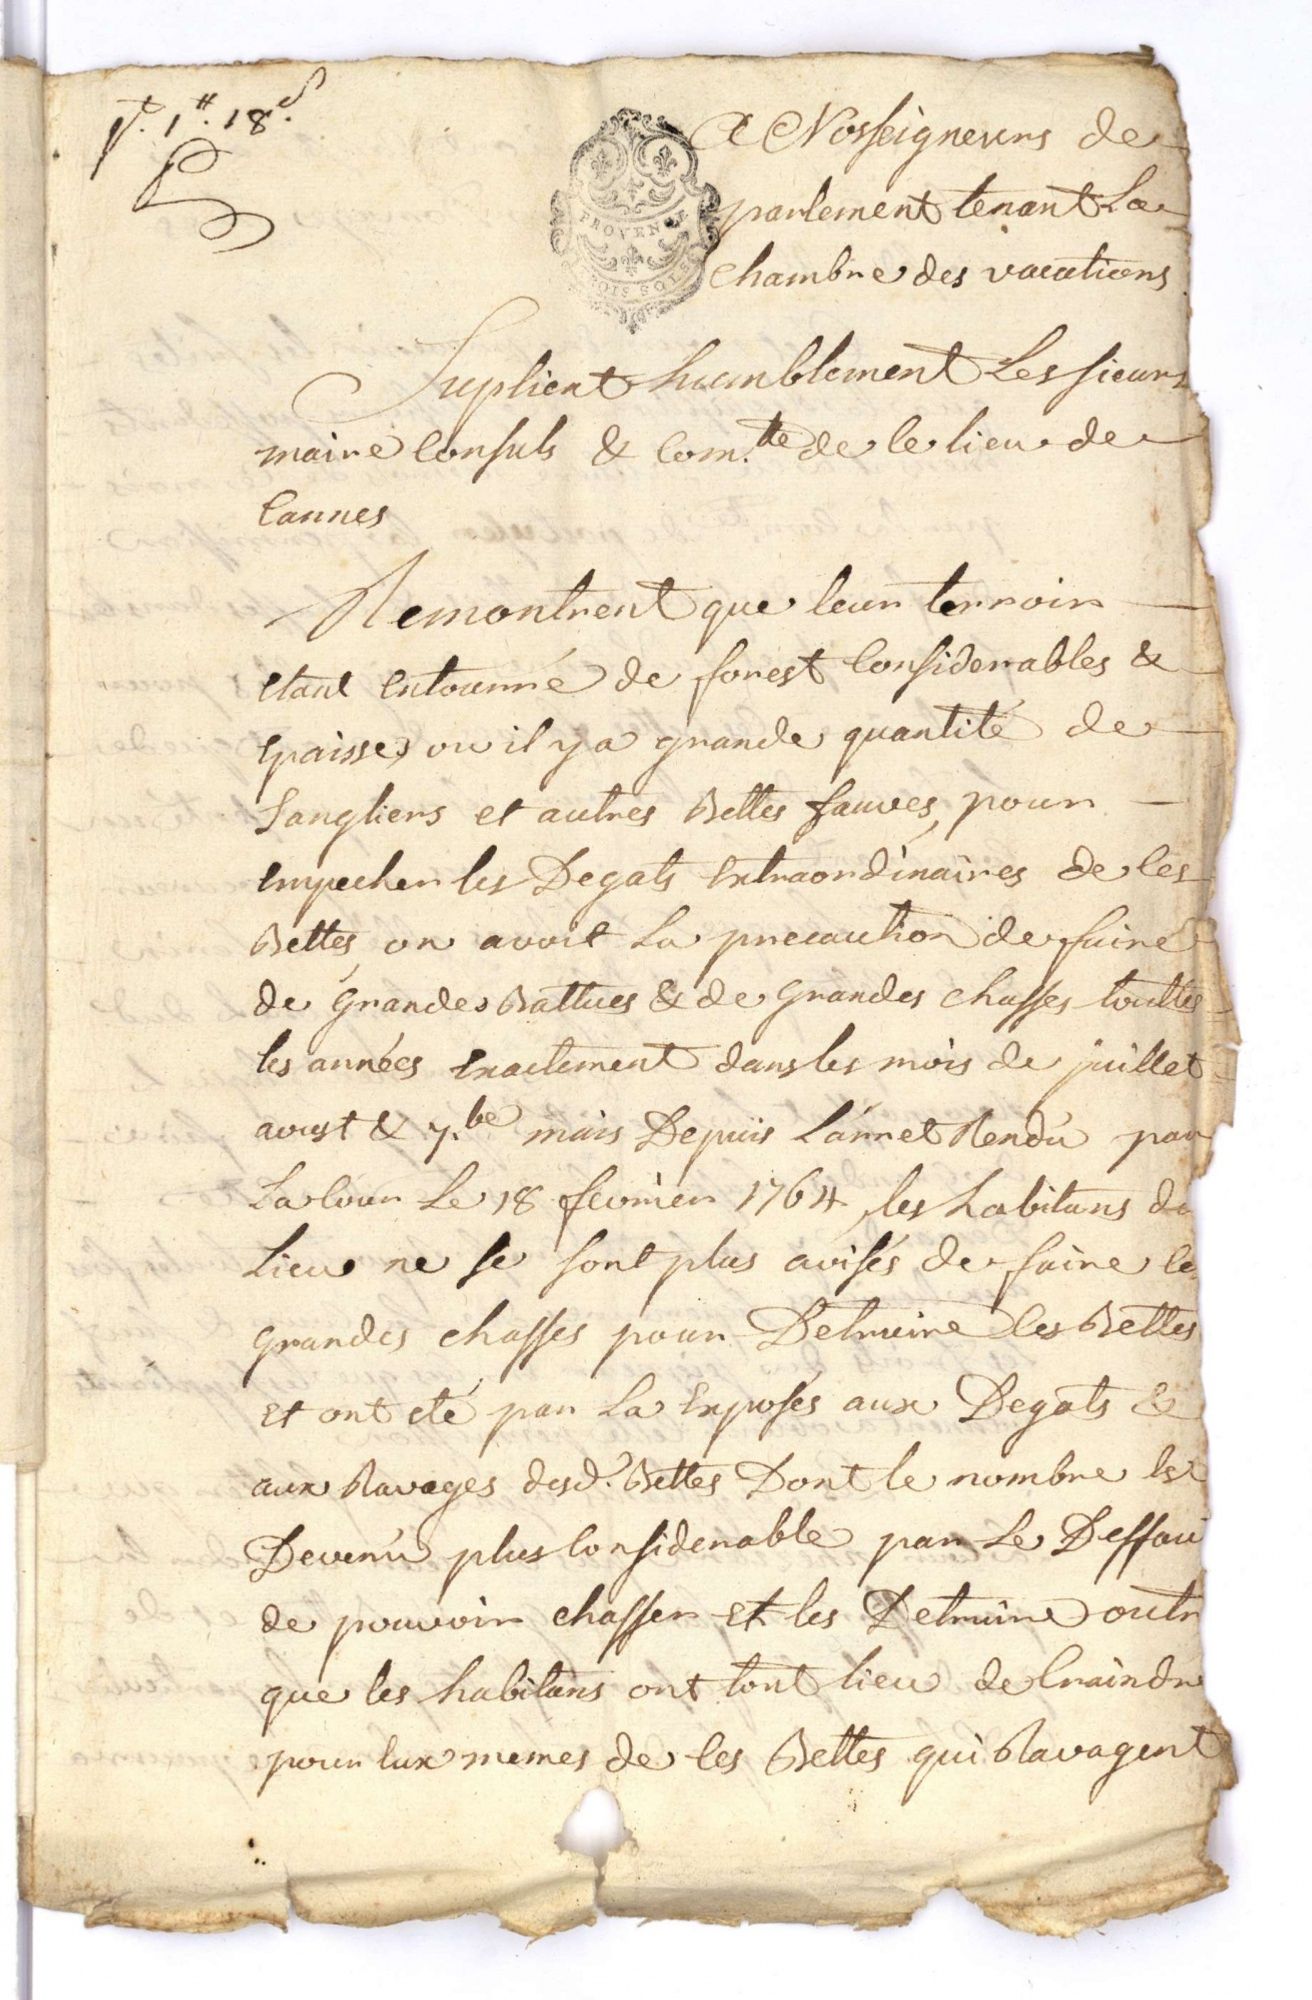 P. 1.# 18.s
A Nosseigneurs de
parlement tenant La
Chambre des vacations
PROVENCE
Suplient humblement Les sieurs
maire Consuls & Com.te de ce lieu de
Cannes
Remontrent que leur terroir
etant entourré de forest Considerables &
epaisses ou il y a grande quantité de
Sangliers et autres Bettes fauves, pour
empecher les Degats extraordinaires de ces
Bettes, on avoit La precaution de faire
de grandes Battues & de grandes chasses touttes
les années exactement dans les mois de juillet
aoust & 7.be mais Depuis L'arret Rendu par
La Cour Le 18 fevrier 1764, les habitans du
Lieu ne se sont plus avisés de faire ces
grandes chasses pour Detruire les Bettes
et ont eté par La exposés aux Degats &
aux Ravages desd. Bettes Dont le nombre est
Devenu plus Considerable par Le Deffau
de pouvoir chasser et les Detruire outr
que les habitans ont tout lieu de Craindr
pour eux memes de ces Bettes qui Ravagent